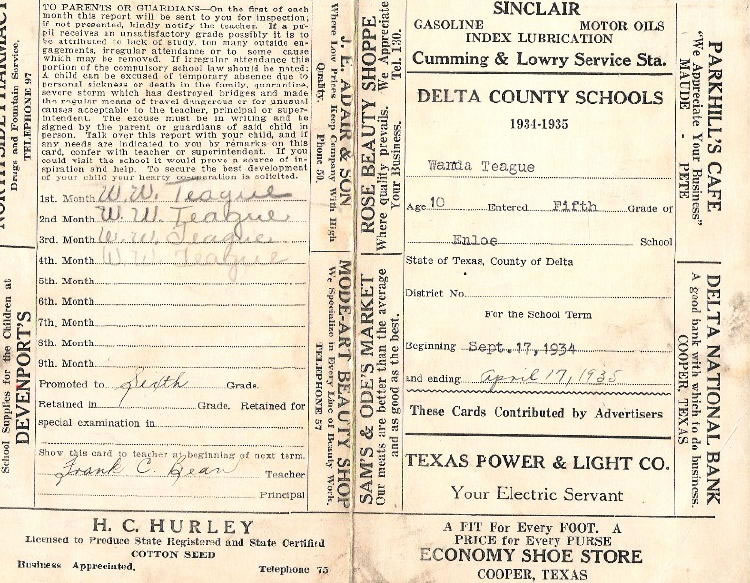 TO PARENTS OR GUARDIANS—On the first of each
month this report will be sent to you for inspection;
if not presented, kindly notify the teacher. If a pu-
pil receives an unsatisfactory grade possibly it is to
be attributed to lack of study, too many outside en-
gagements, irregular attendance or to some cause
which may be removed. If irregular attendance this
portion of the compulsory school law should be noted:
A child can be excused of temporary absence due to
personal sickness or death in the family, quarantine,
severe storm which has destroyed bridges and made
the regular means of travel dangerous or for unusual
causes acceptable to the teacher, principal or super-
intendent. The excuse must be in writing and be
signed by the parent or guardians of said child in
person. Talk over this report with your child, and if
any needs are indicated to you by remarks on this
card, confer with teacher or superintendent. If you
could visit the school it would prove a source of in-
spiration and help. To secure the best development
of your child your hearty co-operation is solicited.
1st. Month W. W. Teague
2nd Month W. W. Teague
3rd. Month W. W. Teague
4th. Month W W Teague
5th. Month
6th. Month
7th. Month
8th. Month
9th. Month
Promoted to Sixth Grade.
Retained in Grade. Retained for
special examination in
Show this card to teacher at beginning of next term.
Frank C. Bean Teacher
Principal
PHARMACY
Drugs and Fountain Service.
TELEPHONE 97
School Supplies for the Children at
DEVENPORT'S
J. E. ADAIR & SON
Where Low Prices Keep Company With High
Quality. Phone 50.
MODE-ART BEAUTY SHOP
We Specialize in Every Line of Beauty Work.
TELEPHONE 57
H. C. HURLEY
Licensed to Produce State Registered and State Certified
COTTON SEED
Business Appreciated. Telephone 75
ROSE BEAUTY SHOPPE
Where quality prevails. We Appreciate
Your Business. Tel. 130.
SAM'S & ODE'S MARKET
Our meats are better than the average
and as good as the best.
SINCLAIR
GASOLINE MOTOR OILS
INDEX LUBRICATION
Cumming & Lowry Service Sta.
DELTA COUNTY SCHOOLS
1934-1935
Wanda Teague
Age 10 Entered Fifth Grade of
Enloe School
State of Texas, County of Delta
District No.
For the School Term
Beginning Sept. 17, 1934
and ending April 17, 1935
These Cards Contributed by Advertisers
TEXAS POWER & LIGHT CO.
Your Electric Servant
PARKHILL'S CAFE
"We Appreciate Your Business"
MAUDE - PETE
DELTA NATIONAL BANK
A good bank with which to do business.
COOPER, TEXAS
A FIT For Every FOOT. A
PRICE for Every PURSE
ECONOMY SHOE STORE
COOPER, TEXAS